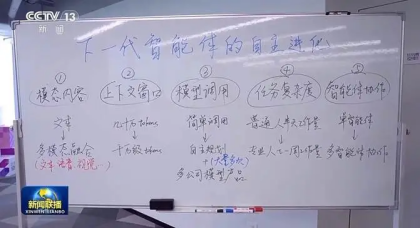 CCTV 13
新闻
下一代智能体的自主进化
① ② ③ ④ ⑤
模态内容 上下文窗口 模型调用 任务复杂度 智能体协作
文本 几千tokens 简单调用 普通人半天工作量 单智能体
多模态融合 十万级tokens 自主规划 专业人士一周工作量 多智能体协作
(文本、语音、视觉...) +(大量多次)
多公司模型产品
新闻联播
XINWEN LIANBO